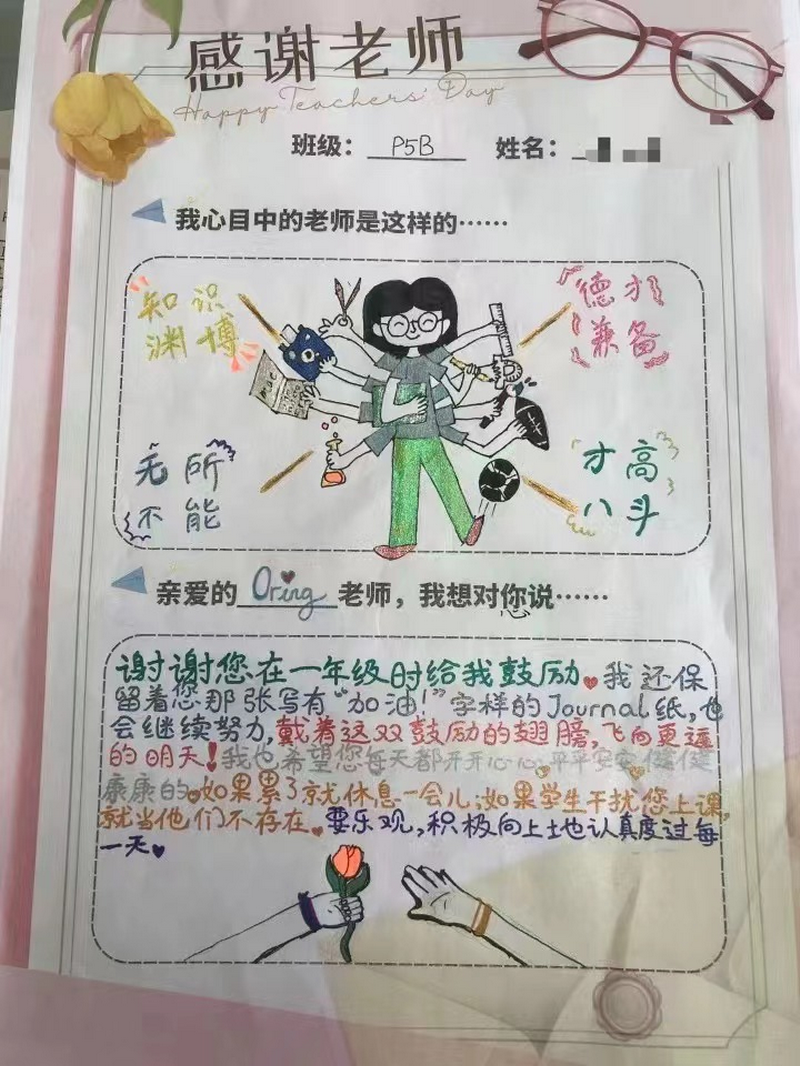 感谢老师
Happy Teachers' Day
班级： P5B 姓名：
我心目中的老师是这样的……
知识
渊博
德才
兼备
mac
无所
不能
才高
八斗
亲爱的 Oring 老师，我想对您说……
谢谢您在一年级时给我鼓励。我还保
留着您那张写有“加油！”字样的Journal纸，也
会继续努力，戴着这双鼓励的翅膀，飞向更遥
的明天！我也希望您每天都开开心心、平平安安、健健
康康的。如果累了就休息一会儿；如果学生干扰您上课，
就当他们不存在。要乐观，积极向上土也认真度过每
一天